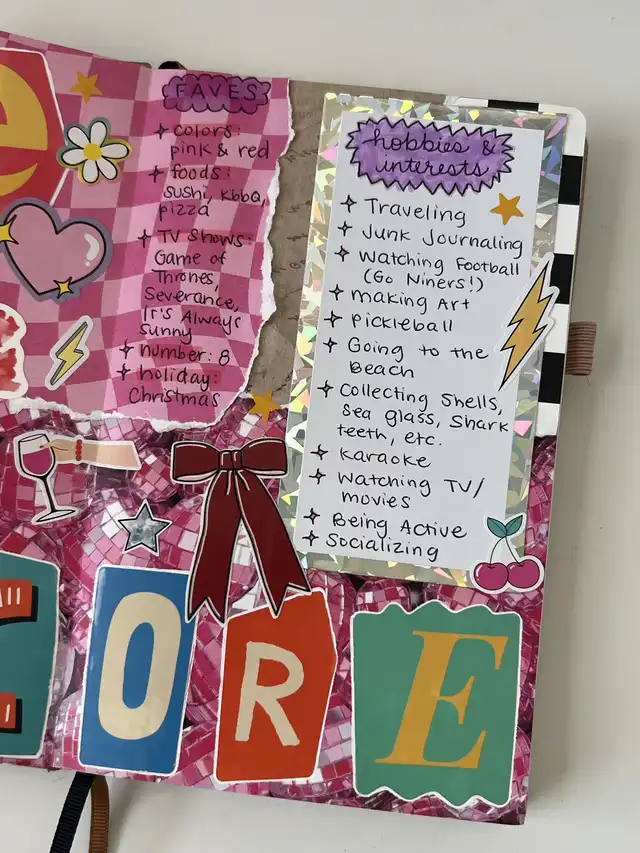 e
FAVES
colors:
pink & red
foods:
sushi, KbbQ,
pizza
TV Shows:
Game of
Thrones,
Severance,
It's Always
Sunny
number: 8
holiday:
Christmas
hobbies &
interests
Traveling
Junk Journaling
Watching Football
(Go Niners!)
making Art
Pickleball
Going to the
Beach
Collecting Shells,
Sea glass, Shark
teeth, etc.
Karaoke
Watching TV/
movies
Being Active
Socializing
O R E